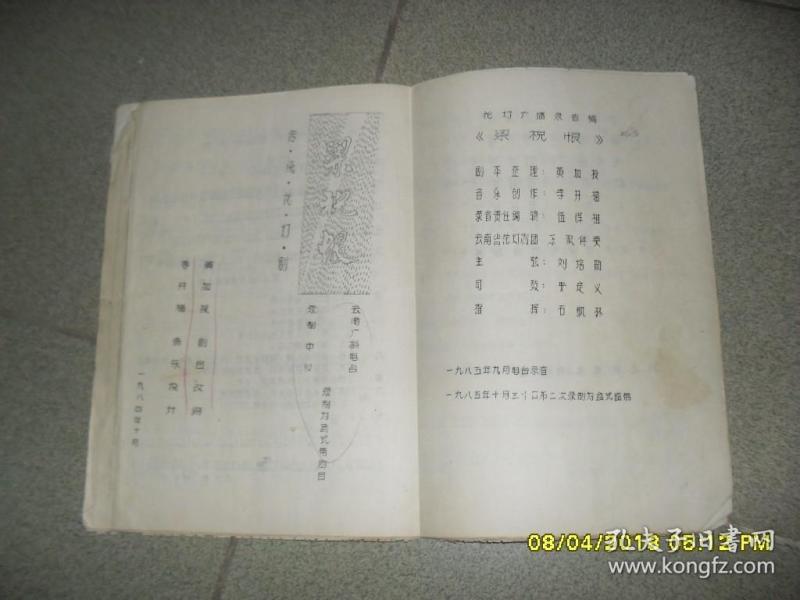 梁祝恨
古·装·花·灯·剧
云南广播电台
录制中心
录制为盒式带曲目
黄加良 剧本改编
李开福 音乐设计
一九八四年十月
花灯广播录音稿
《梁祝恨》
剧本整理：黄加良
音乐创作：李开福
录音责任编辑：伍体祖
云南省花灯剧团 乐队伴奏
主弦：刘培韵
司鼓：李定义
指挥：石帆
一九八五年九月电台录音
一九八五年十月三十日第二次录制为盒式磁带
08/04/2018 05:12 PM
孔夫子旧书网
www.kongfz.com